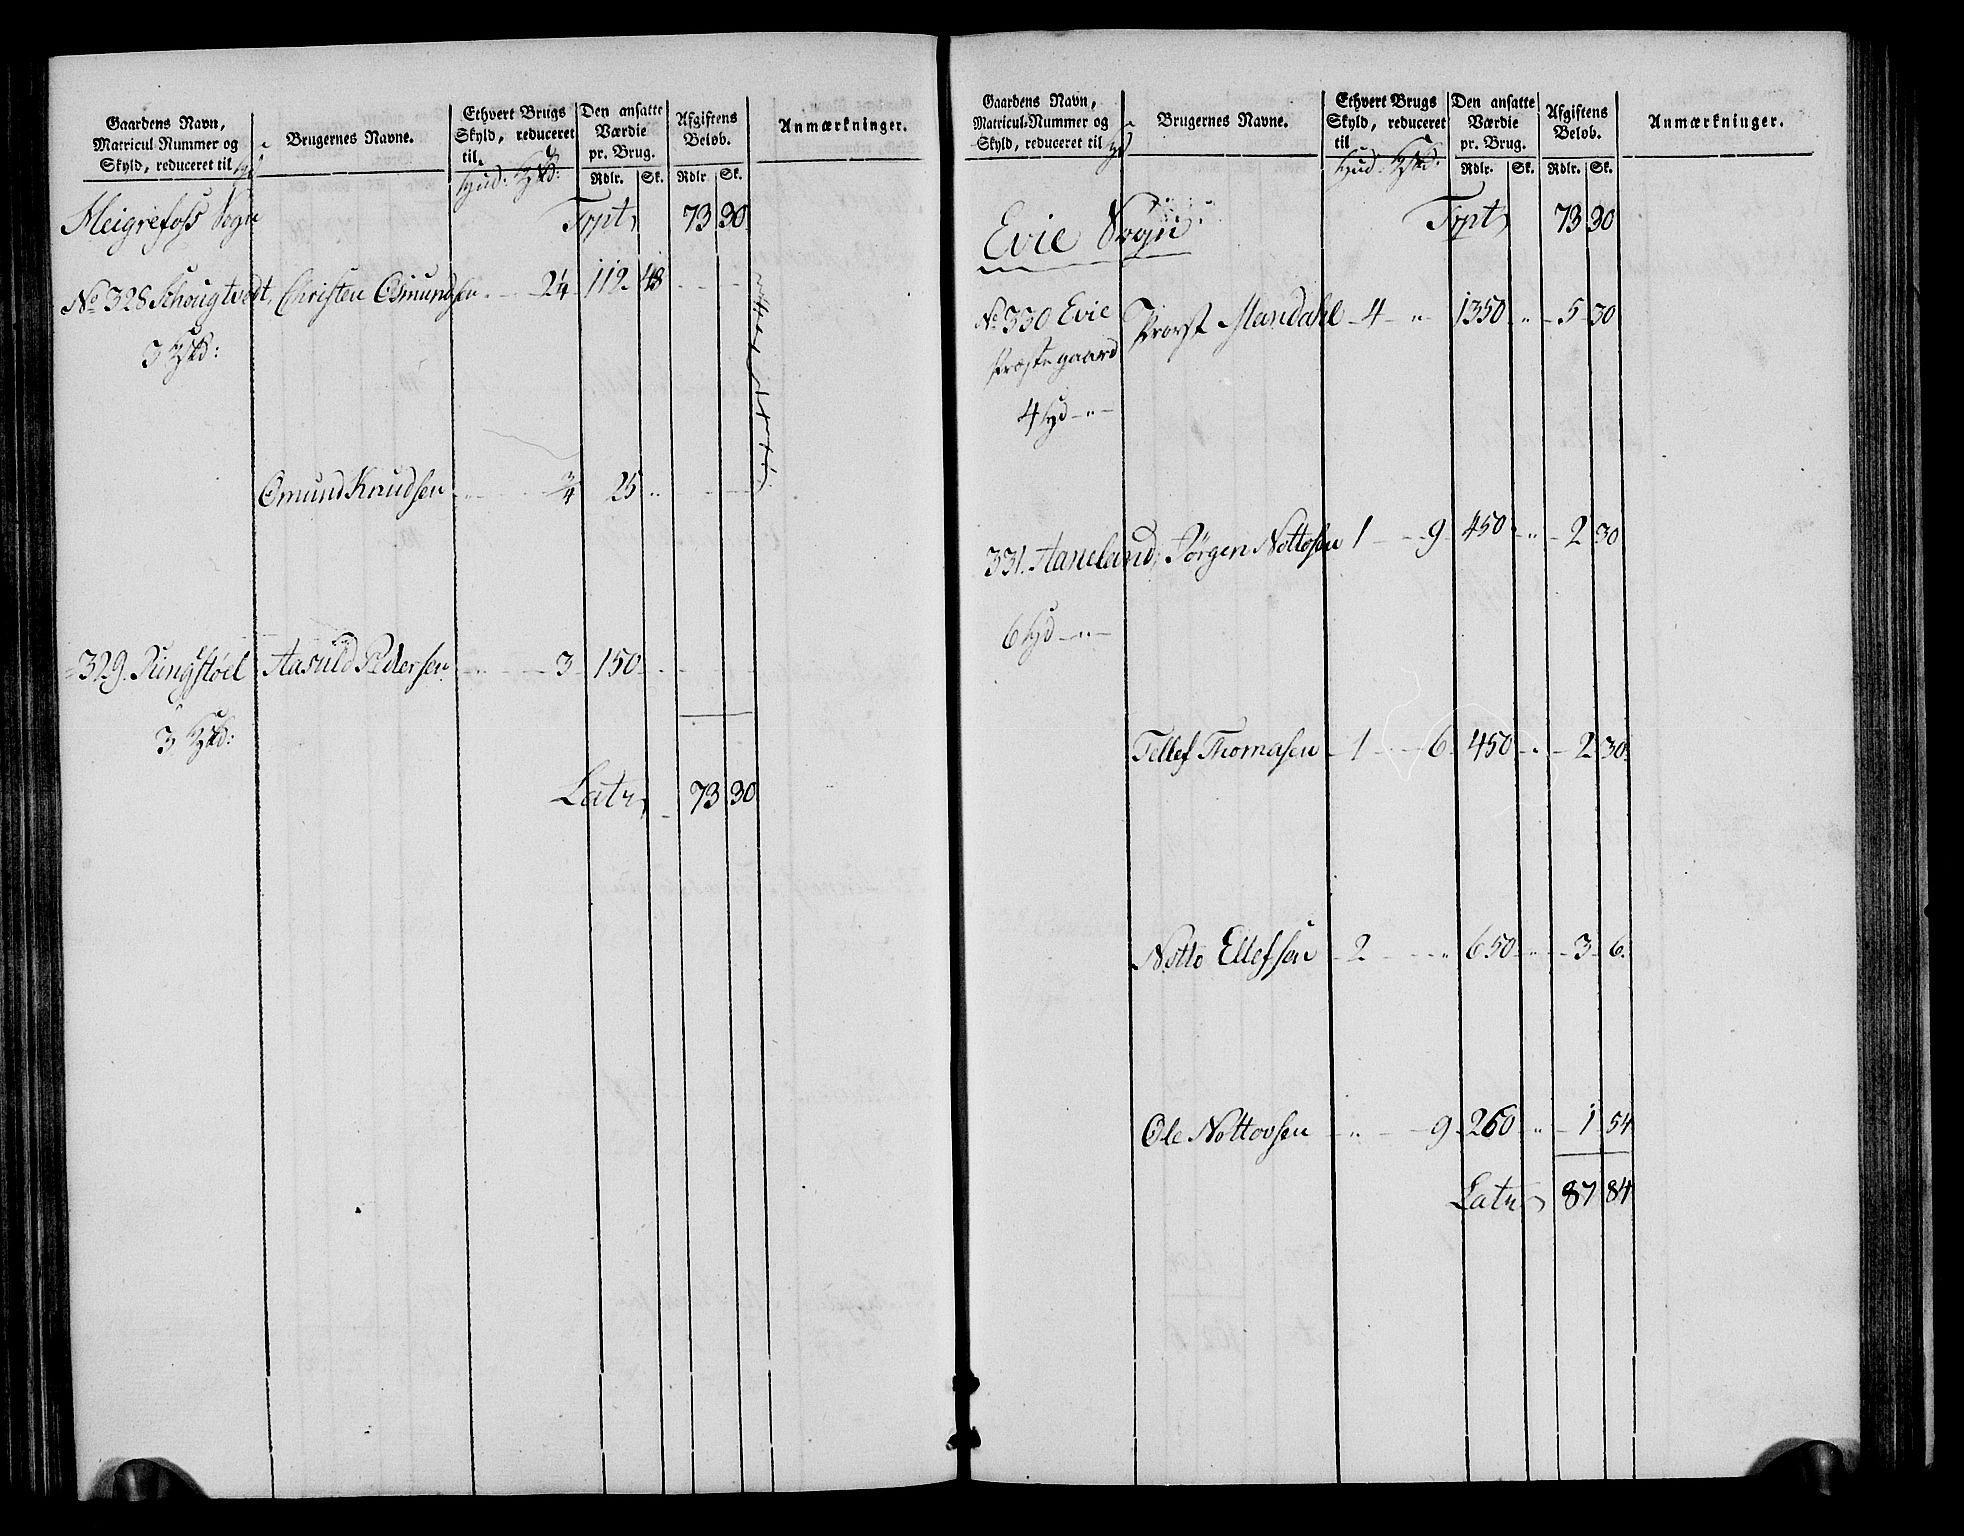 Gaardens Navn,
Matricul-Nummer og
Skyld, reduceret til
Brugernes Navne.
Ethvert Brugs
Skyld, reduceret
til
Hud. Skd:
Den ansatte
Værdie
pr. Brug.
Rdlr. Sk.
Afgiftens
Beløb.
Rdlr. Sk.
Anmærkninger.
Heigrefoss Sogn
Trpt 73 30
No 328 Schougtvedt, Christen Osmundsen 2¼ 112 48
3 Skd:
Omund Knudsen ¾ 25 "
329. Ringstøel Aasuld Pedersen " 3 150
3 Skd:
Latr 73 30
Gaardens Navn,
Matricul-Nummer og
Skyld, reduceret til
Brugernes Navne.
Ethvert Brugs
Skyld, reduceret
til
Hud. Skd:
Den ansatte
Værdie
pr. Brug.
Rdlr. Sk.
Afgiftens
Beløb.
Rdlr. Sk.
Anmærkninger.
Evie Sogn
Trpt 73 30
No 330 Evie Provst Mandahl 4 " 1350 " 5 30
Præstegaard
4 Hd "
331. Aaneland, Jörgen Nottosen 1 9 450 " 2 30
6 Hd "
Tellef Thomasen 1 6 450 " 2 30
Notto Ellefsen 2 " 650 " 3 6.
Ole Nottovsen " 9 260 " 1 54
Latr 87 84